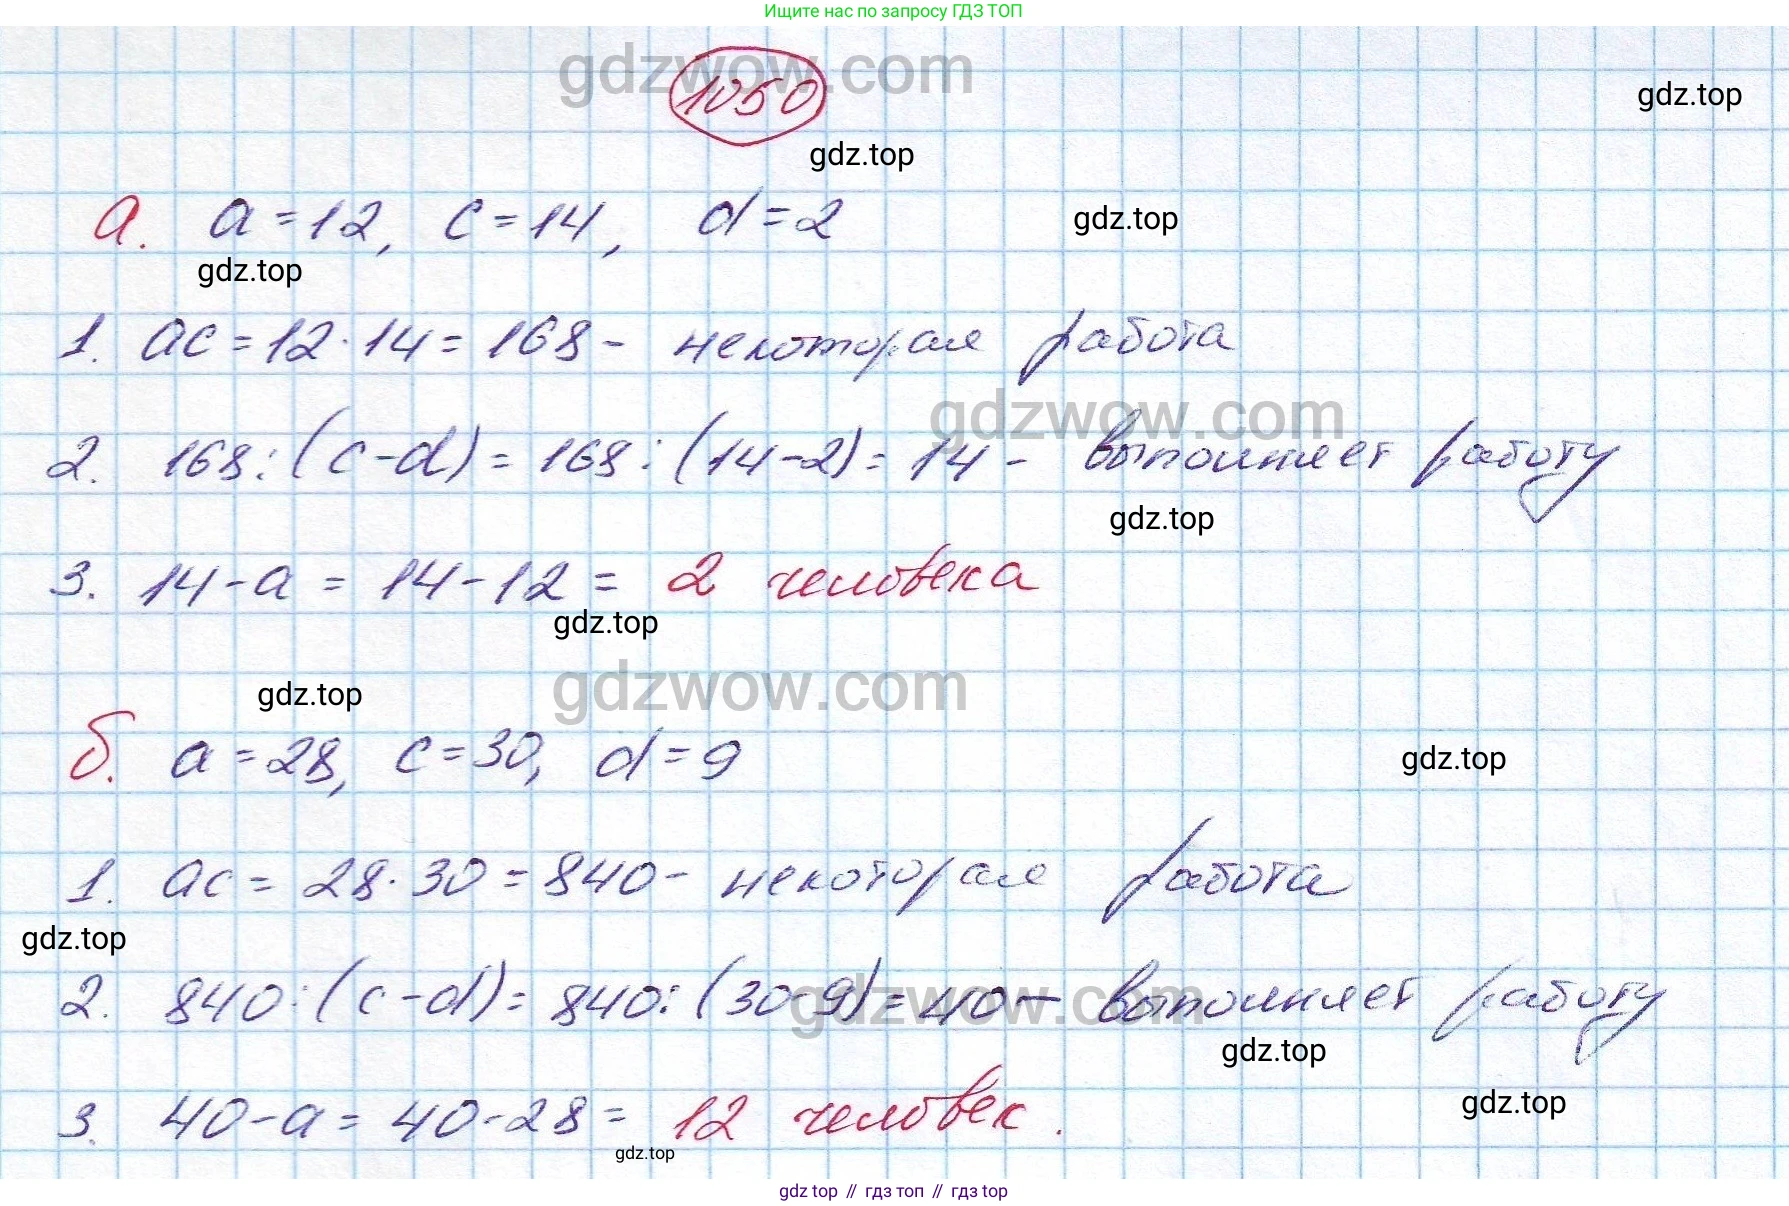 Ищите нас по запросу ГДЗ ТОП
gdzwow.com
1050
gdz.top
gdz.top
а. a = 12, c = 14, d = 2
gdz.top
gdz.top
1. ac = 12 · 14 = 168 - некоторая работа
gdzwow.com
2. 168 : (c - d) = 168 : (14 - 2) = 14 - выполняет работу
gdz.top
3. 14 - a = 14 - 12 = 2 человека
gdz.top
gdzwow.com
gdz.top
б. a = 28, c = 30, d = 9
gdz.top
1. ac = 28 · 30 = 840 - некоторая работа
gdz.top
2. 840 : (c - d) = 840 : (30 - 9) = 40 - выполняет работу
gdzwow.com
gdz.top
3. 40 - a = 40 - 28 = 12 человек.
gdz.top
gdz.top
gdz top // гдз топ // гдз top